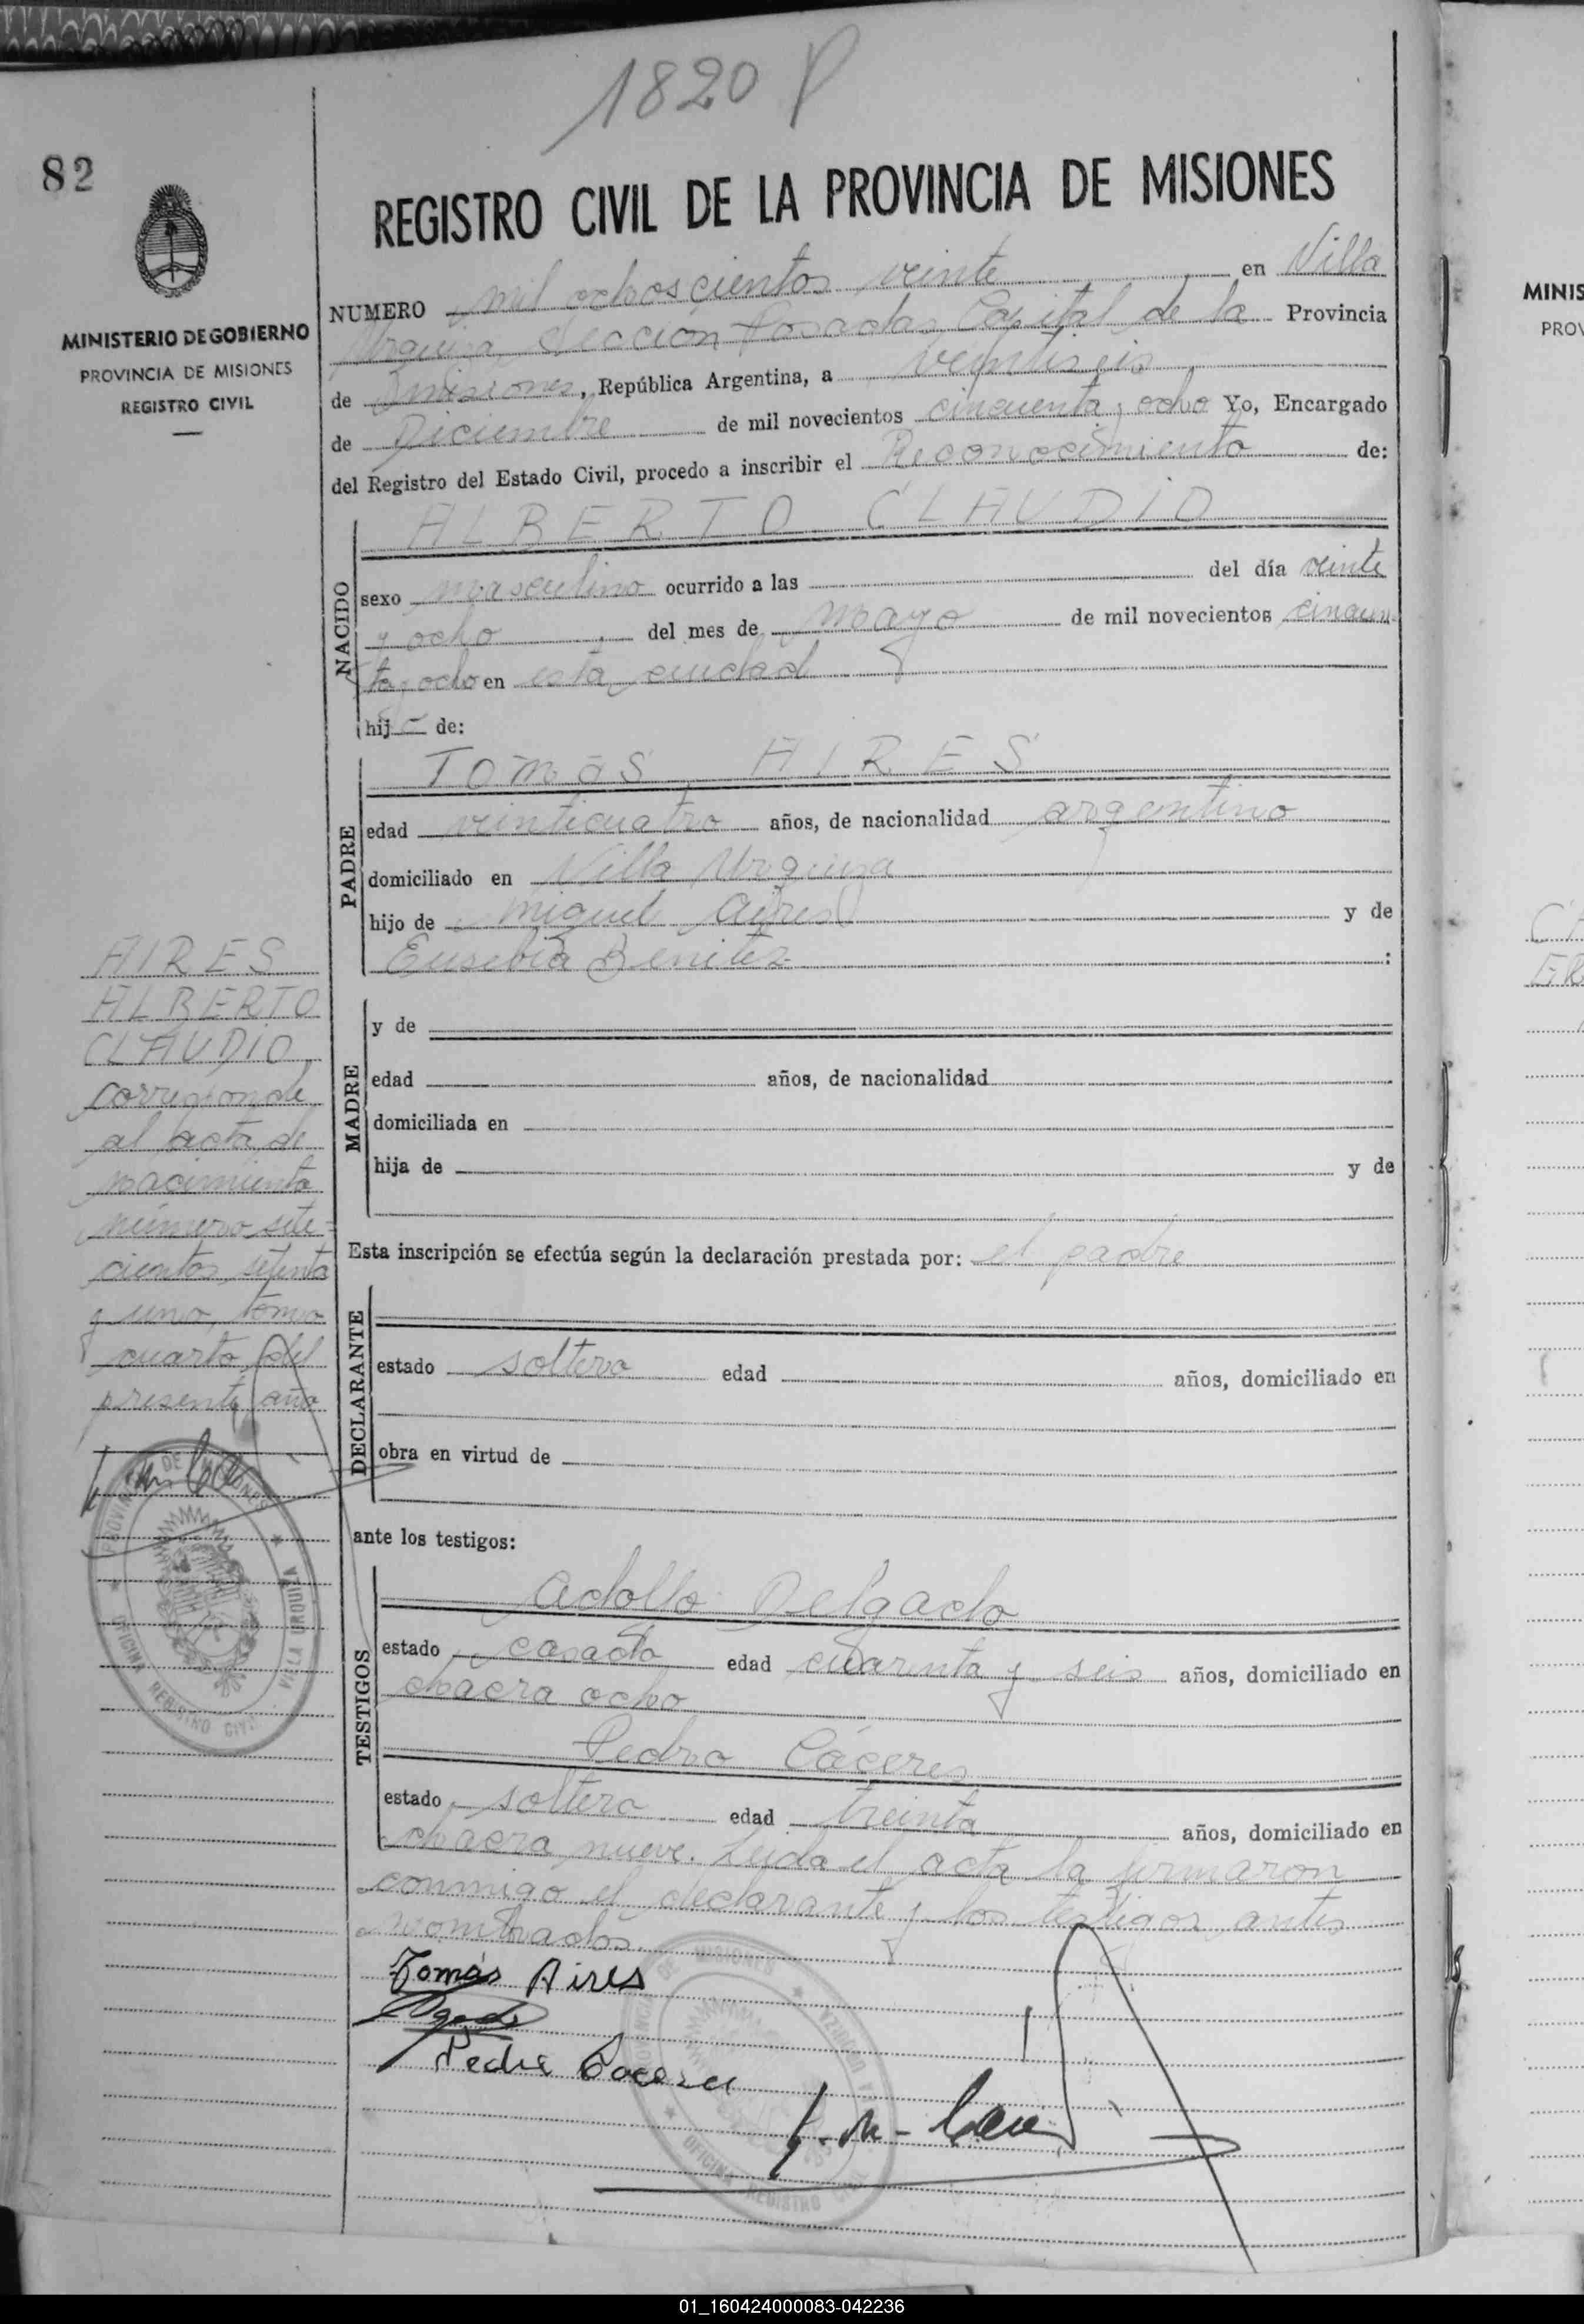 1820 P
82
REGISTRO CIVIL DE LA PROVINCIA DE MISIONES
MINISTERIO DE GOBIERNO
PROVINCIA DE MISIONES
REGISTRO CIVIL
NUMERO mil ochoscientos veinte en Villa
Urquiza, Sección Posadas, Capital de la Provincia
de Misiones, República Argentina, a veintiseis
de Diciembre de mil novecientos cincuenta y ocho Yo, Encargado
del Registro del Estado Civil, procedo a inscribir el Reconocimiento de:
NACIDO
ALBERTO CLAUDIO
sexo masculino ocurrido a las del día veinte
y ocho del mes de mayo de mil novecientos cincuen
ta y ocho en esta ciudad
hij de:
PADRE
TOMAS AIRES
edad veinticuatro años, de nacionalidad argentino
domiciliado en Villa Urquiza
hijo de Miguel Aires y de
Eusebia Benitez :
MADRE
y de
edad años, de nacionalidad
domiciliada en
hija de y de
Esta inscripción se efectúa según la declaración prestada por: el padre
DECLARANTE
estado soltero edad años, domiciliado en
obra en virtud de
ante los testigos:
TESTIGOS
Adolfo Delgado
estado casado edad cuarenta y seis años, domiciliado en
chacra ocho
Pedro Cáceres
estado soltero edad treinta años, domiciliado en
chacra nueve. Leida el acta la firmaron
conmigo el declarante y los testigos antes
nombrados.
Tomás Aires
Pedro Caceres
AIRES
ALBERTO
CLAUDIO
corresponde
al acta de
nacimiento
número sete-
cientos setenta
y uno, tomo
cuarto del
presente año
PROVINCIA DE MISIONES
VILLA URQUIZA
OFICINA REGISTRO CIVIL
PROVINCIA DE MISIONES
VILLA URQUIZA
OFICINA REGISTRO CIVIL
MINIS
PROV
01_160424000083-042236